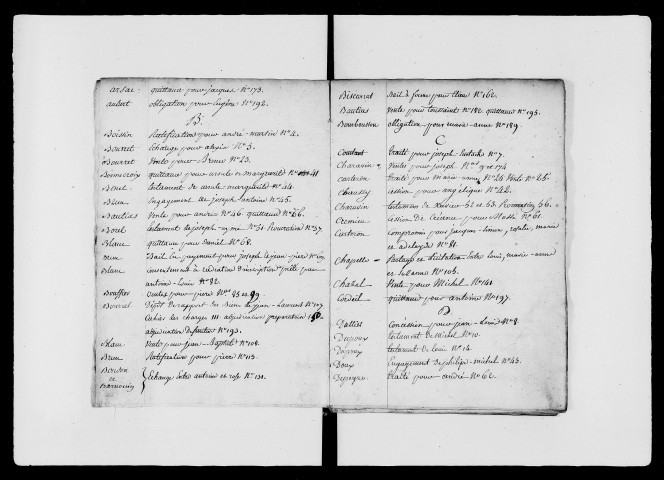 arsac quittance pour jacques N° 173.
aubert obligation pour Eugène N° 192.
B.
Boissin Ratification pour andré-martin N° 2.
Bourret Echange pour alexis N° 3.
Bourret Vente pour Bruno N° 23.
Bonnecoix quittance pour ursule et marguerite N° 41
Bonet testament de ursule marguerite N° 44.
Bieu Engagement de joseph antoine N° 45.
Bautias Vente pour andré N° 46 quittance N° 66.
Borel testament de joseph N° 51.
Blanc quittance pour Daniel N° 68.
Brun Bail en payement pour joseph
Blanc
antoine Louis N° 82.
Bouffier Ventes pour pierre N° 95 et 99
Bourret Dépôt de rapport des Biens de jean-Laurent N° 107
Cahier des charges 111 adjudication préparatoire
adjudication définitive N° 193.
Blanc Vente pour jean-Baptiste N° 108.
Brun Ratification pour pierre N° 113.
Bourdon
et Echange entre antoine et rose N° 131.
Biscarrat Bail à ferme pour Claude N° 162.
Bautias Vente pour toussaint N° 182 quittance N° 195.
Bourbousson obligation pour marie-anne N° 189.
C
Constant traité pour joseph-Eustache N° 7.
Charavin Ventes pour joseph N° 9 et 174
Carteron traité pour Marie-anne N° 24 Vente N° 25.
Chaussy Cession pour angélique N° 42.
Charavin testament de Xavier 52 et 53 56.
Cremieu Cession de Créance pour Mossé N° 61.
Castion Compromis pour jacques-simon, rosalie, marie
et adelaïde N° 81.
Chapelle Partage et licitation entre louis, marie-anne
et suzanne N° 106.
Chabal Vente pour Michel N° 141
Cordeil quittance pour antoine N° 197.
D
Dattier Concession pour jean-Louis N° 8.
Dupuy testament de Michel N° 10.
Dupuy testament de Louis N° 14.
Doux Engagement de philippe-michel N° 43.
traité pour andré N° 62.